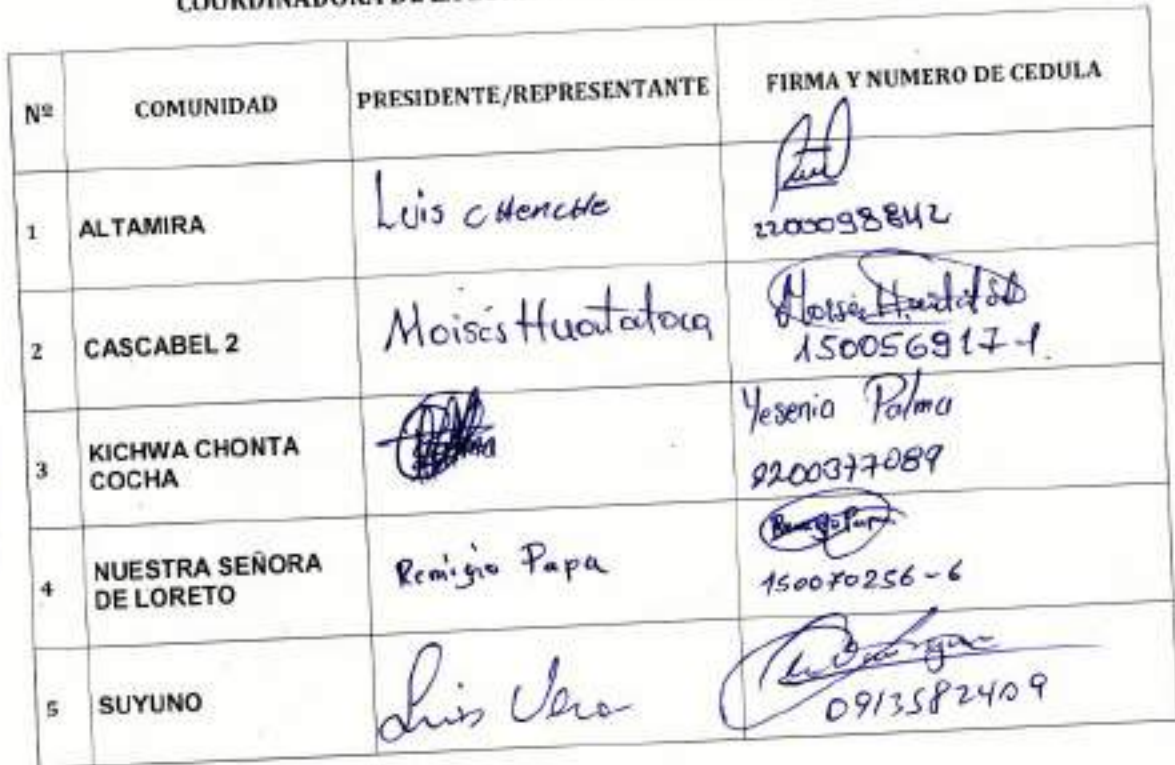 Nº COMUNIDAD PRESIDENTE/REPRESENTANTE FIRMA Y NUMERO DE CEDULA
1 ALTAMIRA Luis CHENCHE 2200098842
2 CASCABEL 2 Moisés Huatatoca 150056917-1
3 KICHWA CHONTA COCHA Yesenia Palma 2200377089
4 NUESTRA SEÑORA DE LORETO Remigio Papa 150070256-6
5 SUYUNO Luis Vera 0913582409